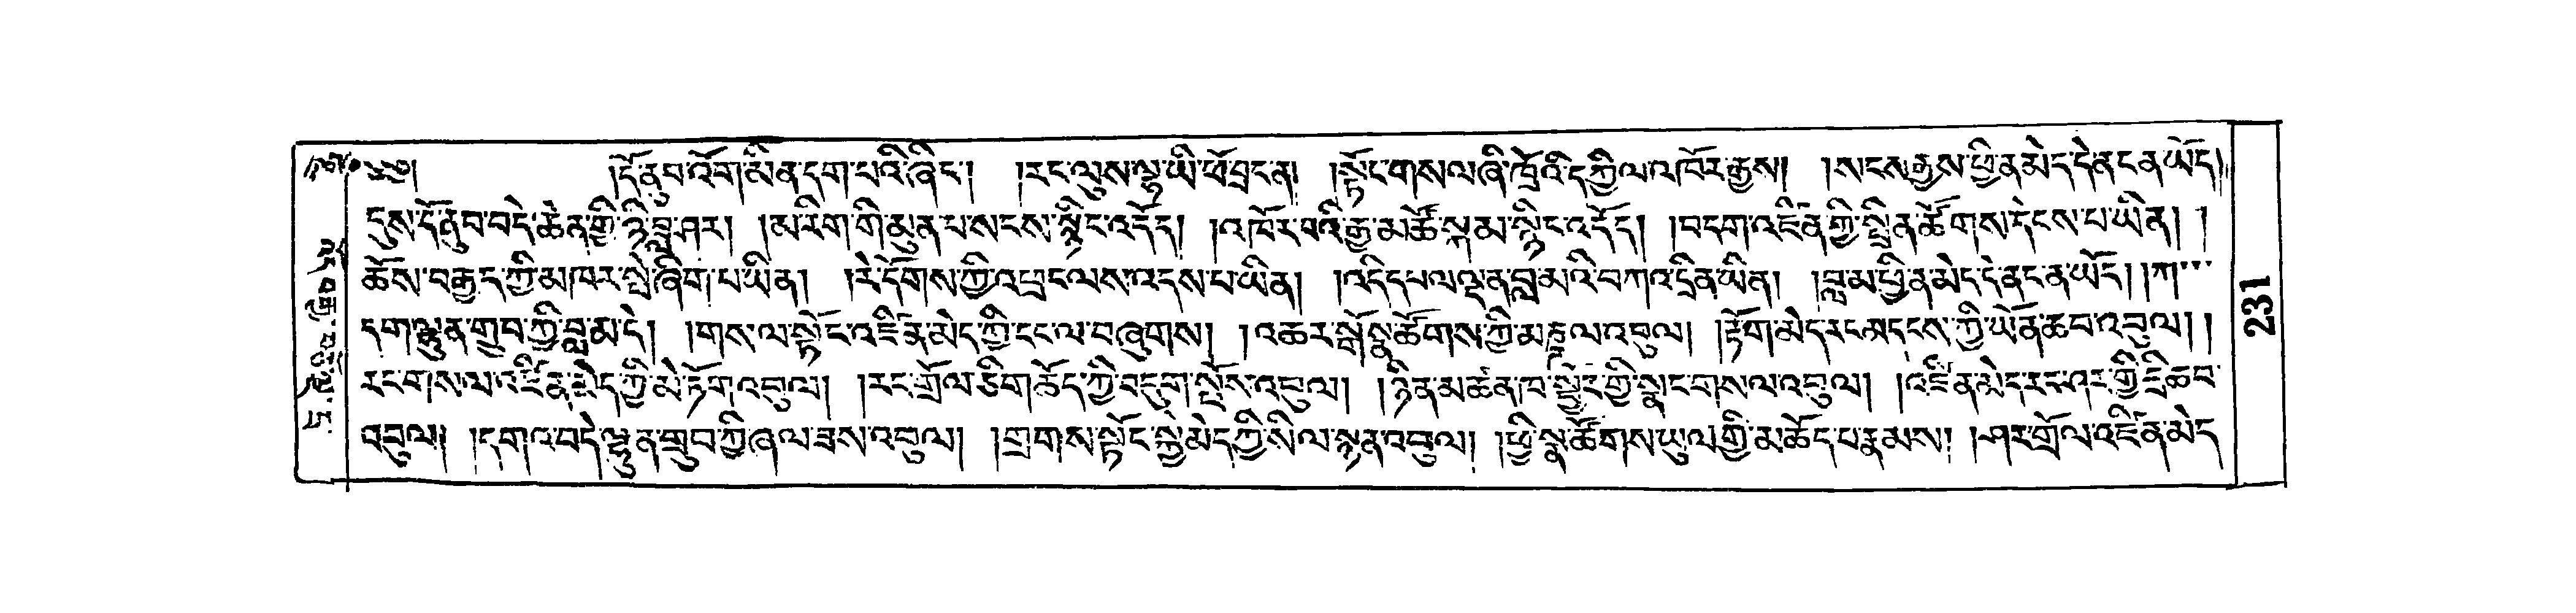 །དོ་ནུབ་འོག་མིན་དག་པའི་ཞིང་། །རང་ལུས་ལྷ་ཡི་ཕོ་བྲང་ན། །སྟོང་གསལ་ཞི་ཁྲོའི་དཀྱིལ་འཁོར་རྒྱས། །སངས་རྒྱས་ཕྱི་ན་མེད་དེ་ནང་ན་ཡོད།
དུས་དོ་ནུབ་བདེ་ཆེན་གྱི་ཉི་ཟླ་ཤར། །མ་རིག་གི་མུན་པ་སངས་སྙིང་འདོད། །འཁོར་བའི་རྒྱ་མཚོ་སྐམ་སྙིང་འདོད། །བདག་འཛིན་གྱི་སྤྲིན་ཚོགས་དེངས་པ་ཡིན། །
ཆོས་བརྒྱད་ཀྱི་མཁར་སྤེ་ཞིག་པ་ཡིན། །རེ་དོགས་ཀྱི་འཕྲང་ལས་འདས་པ་ཡིན། །འདི་དཔལ་ལྡན་བླ་མའི་བཀའ་དྲིན་ཡིན། །བླ་མ་ཕྱི་ན་མེད་དེ་ནང་ན་ཡོད། །ཀ་
དག་ལྷུན་གྲུབ་ཀྱི་བླ་མ་དེ། །གསལ་སྟོང་འཛིན་མེད་ཀྱི་ངང་ལ་བཞུགས། །འཆར་སྒོ་སྣ་ཚོགས་ཀྱི་མཎྜལ་འབུལ། །རྟོག་མེད་རང་མདངས་ཀྱི་ཡོན་ཆབ་འབུལ། །
རང་གསལ་འཛིན་མེད་ཀྱི་མེ་ཏོག་འབུལ། །རང་གྲོལ་ཅིག་ཆོད་ཀྱི་བདུག་སྤོས་འབུལ། །ཉིན་མཚན་ཁ་སྦྱོར་གྱི་སྣང་གསལ་འབུལ། །འཛིན་མེད་རང་ཤར་གྱི་དྲི་ཆབ་
འབུལ། །དགའ་བདེ་ལྷུན་གྲུབ་ཀྱི་ཞལ་ཟས་འབུལ། །གྲགས་སྟོང་སྐྱེ་མེད་ཀྱི་སིལ་སྙན་འབུལ། །ཕྱི་སྣ་ཚོགས་ཡུལ་གྱི་མཆོད་པ་རྣམས། །ཤར་གྲོལ་འཛིན་མེད